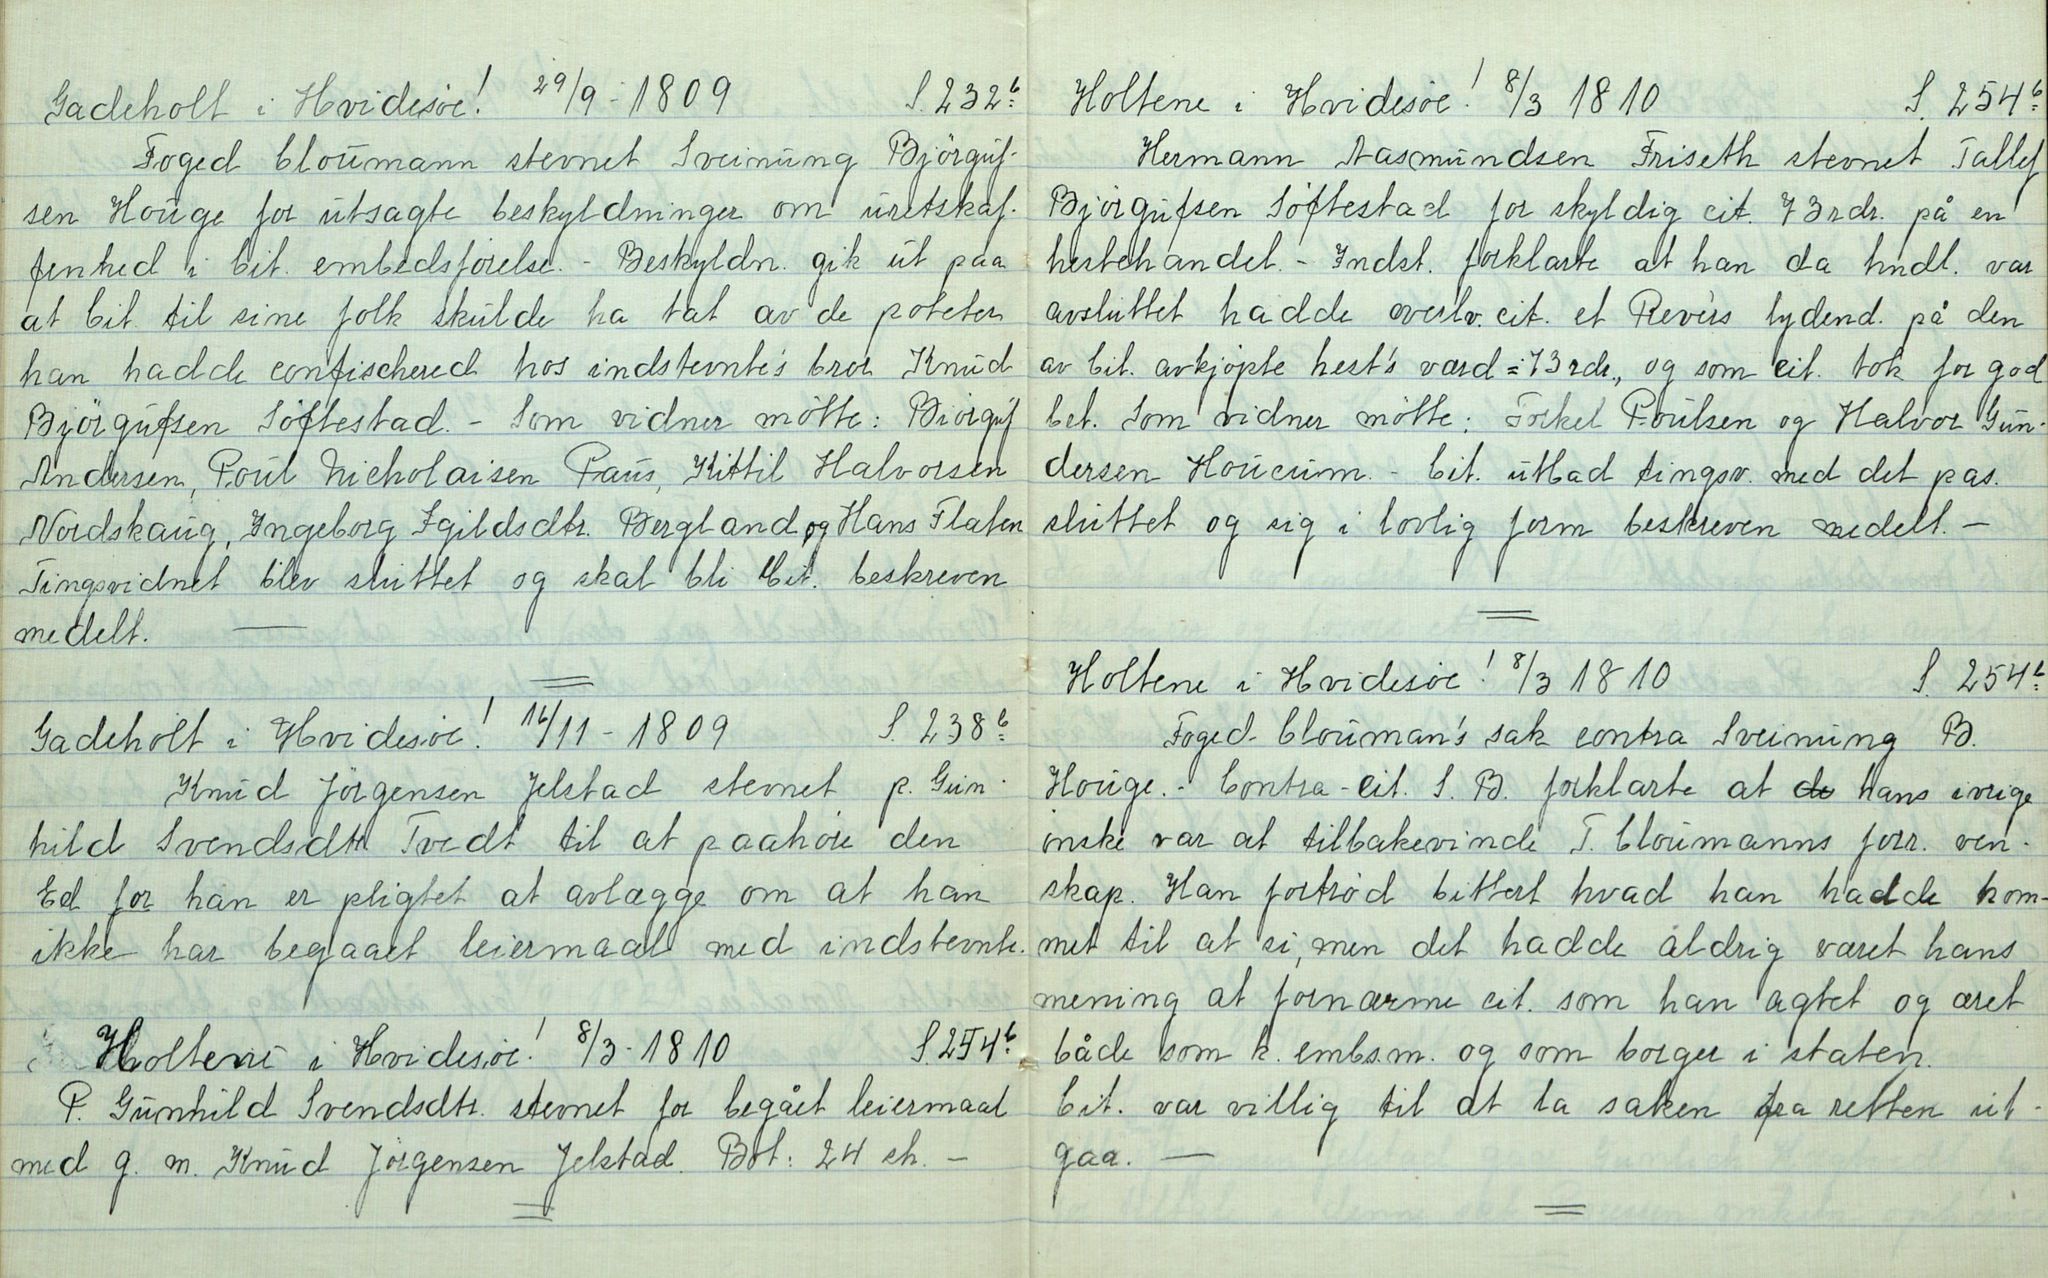 Gadeholt i Hvidesøe! 29/9 - 1809 S. 232b
Foged Cloumann stevnet Sveinung Björguf-
sen Houge for utsagte beskyldninger om uretskaf-
fenhed i Cit. embedsförelse. - Beskyldn. gik ut paa
at Cit. til sine folk skulde ha tat av de poteter
han hadde confischered hos indstevnte's bror Knud
Björgufsen Söftestad. - Som vidner mötte: Biörguf
Andersen, Poul Nicholaisen Paus, Kittil Halvorsen
Nordskaug, Ingeborg Egildsdtr. Bergland og Hans Flaten
Tingsvidnet blev sluttet og skal bli Cit. beskreven
medelt. —
Gadeholt i Hvidesøe! 16/11 - 1809 S. 238b
Knud Jörgensen Jelstad stevnet p. Gun-
hild Svendsdtr Tvedt til at paahöre den
Ed for han er pligtet at avlægge om at han
ikke har begaaet leiermaal med indstevnte.
Holtene i Hvidesøe! 8/3 - 1810 S. 254b
P. Gunhild Svendsdtr. stevnet for begået leiermaal
med g. m. Knud Jörgensen Jelstad. Bot: 24 sk. -
Holtene i Hvidesøe! 8/3 1810 S. 254b
Hermann Aasmundsen Friseth stevnet Tallef
Björgufsen Söftestad for skyldig cit. 73 rdr. på en
hestehandel. - Indst. forklarte at han da hndl. var
avsluttet hadde overlv. cit. et Revers lydend. på den
av Cit. avkjöpte hest's værd = 73 rdr., og som cit. tok for god
bet. Som vidner mötte: Torkel Poulsen og Halvor Gun-
dersen Houcum. - Cit. utbad tingsv. med det pas.
sluttet og sig i lovlig form beskreven medelt. —
Holtene i Hvidesøe! 8/3 1810 S. 254b
Foged Clouman's sak contra Sveinung B.
Houge. - Contra-cit. S. B. forklarte at de hans ivrige
önske var at tilbakevinde F. Cloumanns forr. ven-
skap. Han fortröd bittert hvad han hadde kom-
met til at si, men det hadde aldrig været hans
mening at fornærme cit. som han agtet og æret
både som k. embsm. og som borger i staten.
Cit. var villig til at la saken fra retten ut-
gaa. —